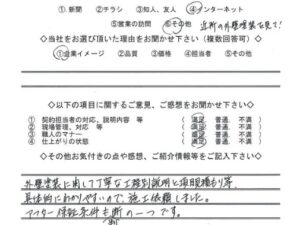 ①. 新聞　②チラシ　③知人、友人　④インターネット
⑤営業の訪問　⑥その他　近所の外壁塗装を見て!
◇当社をお選び頂いた理由をお聞かせ下さい(複数回答可)◇
①企業イメージ　②品質　③価格　④担当者　⑤その他
◇以下の項目に関するご意見、ご感想をお聞かせ下さい◇
① 契約担当者の対応、説明内容　等　(満足 普通. 不満　)
② 現場管理、対応　等　(満足 普通. 不満　)
③ 職人のマナー　(満足 普通. 不満　)
④ 仕上がりの状態　(満足 普通. 不満　)
◇その他お気付きの点や感想、ご紹介情報等をご記入下さい◇
外壁塗装に関して丁寧な工程別説明と項目見積もり等、
具体的にわかりやすいので、施工依頼しました。
アフター保証条件も判断の一つです。